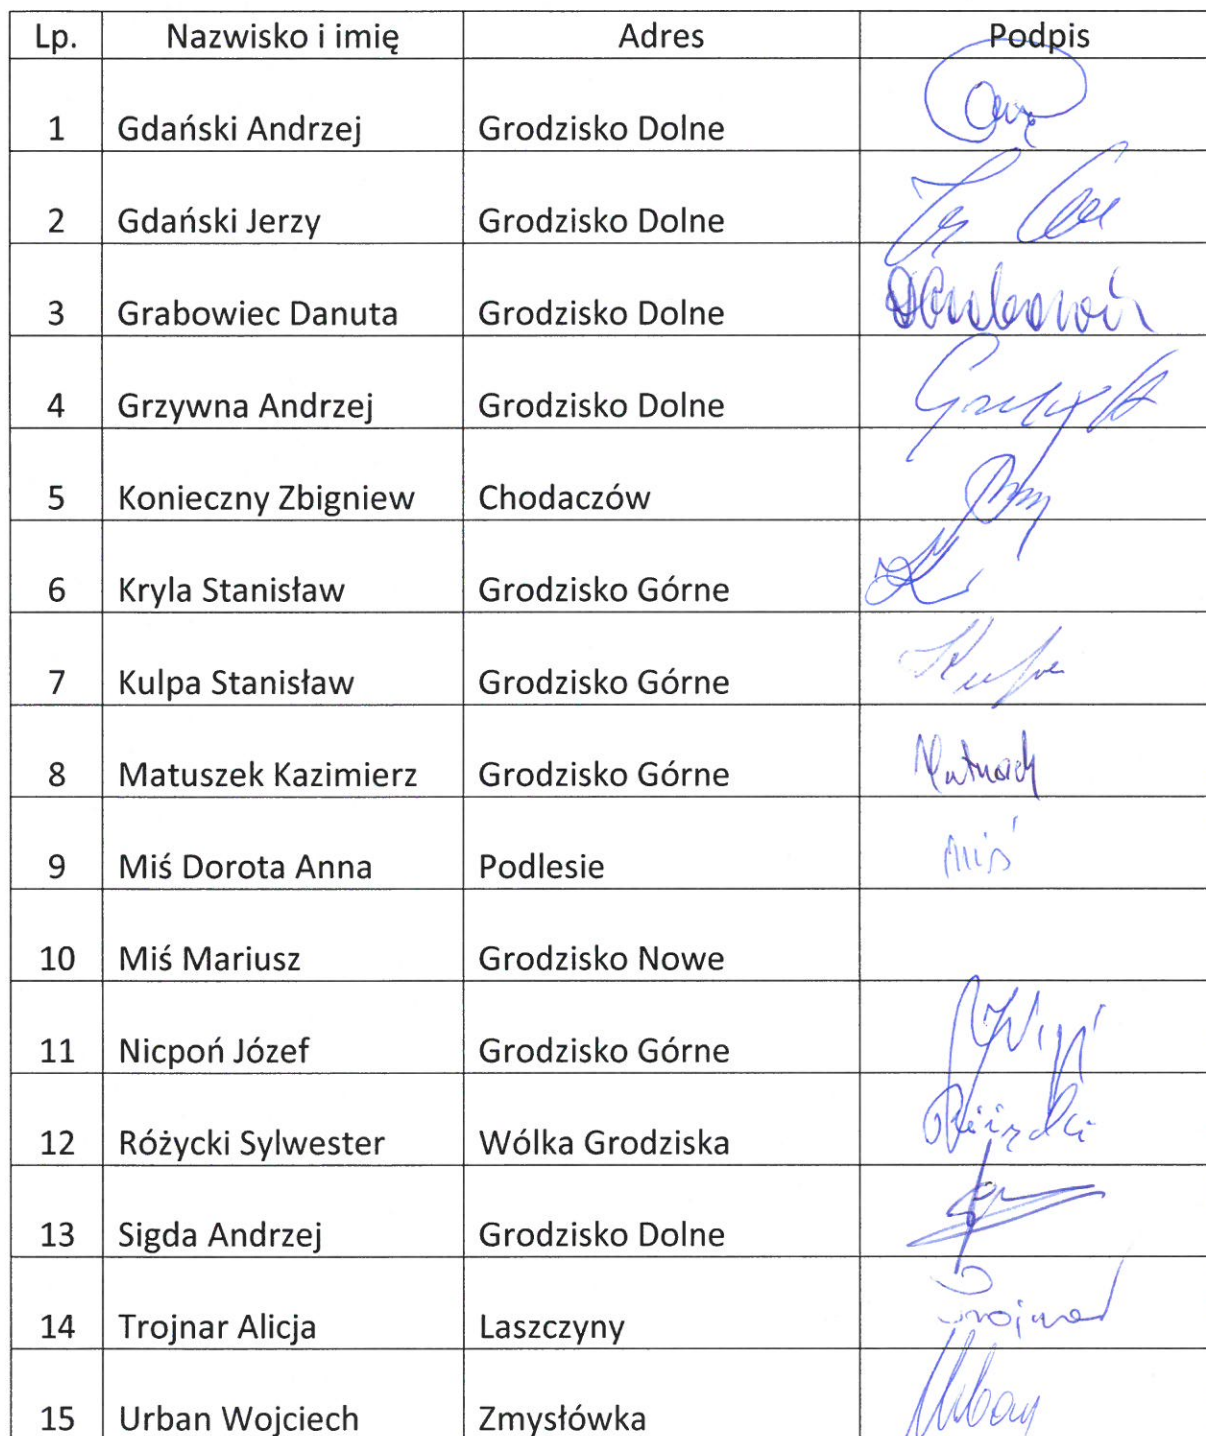 Lp. Nazwisko i imię Adres Podpis
1 Gdański Andrzej Grodzisko Dolne
2 Gdański Jerzy Grodzisko Dolne
3 Grabowiec Danuta Grodzisko Dolne
4 Grzywna Andrzej Grodzisko Dolne
5 Konieczny Zbigniew Chodaczów
6 Kryla Stanisław Grodzisko Górne
7 Kulpa Stanisław Grodzisko Górne
8 Matuszek Kazimierz Grodzisko Górne
9 Miś Dorota Anna Podlesie Miś
10 Miś Mariusz Grodzisko Nowe
11 Nicpoń Józef Grodzisko Górne
12 Różycki Sylwester Wólka Grodziska
13 Sigda Andrzej Grodzisko Dolne
14 Trojnar Alicja Laszczyny Trojnar
15 Urban Wojciech Zmysłówka Urban